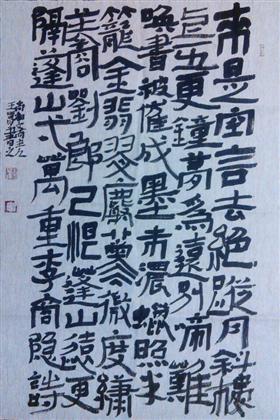 来是空言去絕蹤月斜樓
上五更鐘夢為遠別啼難
喚書被催成墨未濃蠟照半
籠金翡翠麝薰微度繡
芙蓉劉郎已恨蓬山遠更
隔蓬山弌萬重李商隱詩